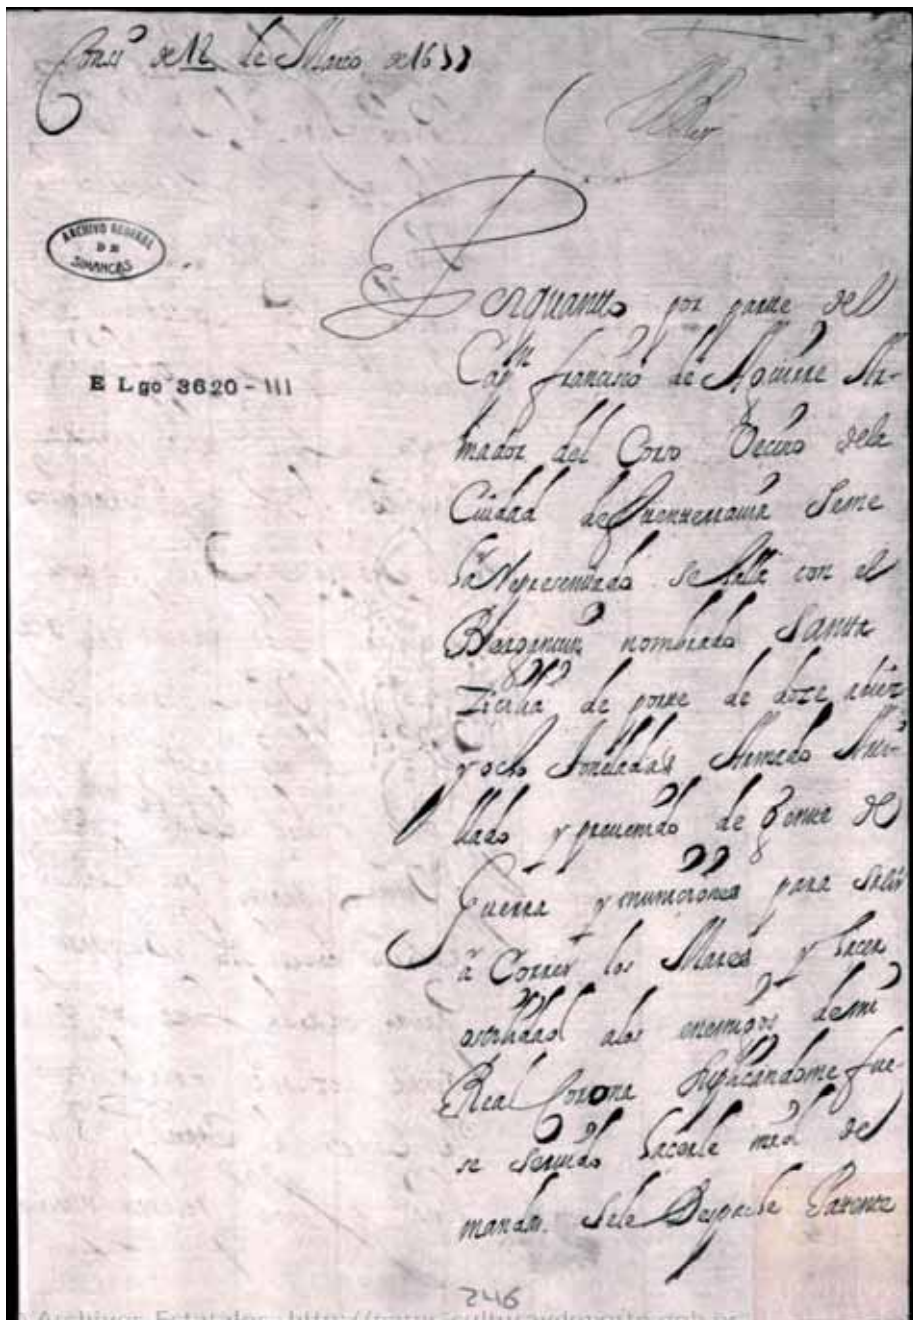 de 12 de Março de 16
ARCHIVO GENERAL
DE
SIMANCAS
E Lgo 3620-III
Porquanto por parte del
Capn francisco de Aguirre Ar-
mador del Corso Vecino dela
Ciudad de fuenterravia Seme
ha Representado se halla con el
nombrado Santa
Zicilia de porte de doze adiez
y ocho toneladas Armado Arti-
llado y prevenido de Gente de
Guerra y municiones para salir
a Correr los Mares y hacer
ostilidad alos enemigos demi
Real Corona suplicandome fue-
se servido hacerle mrd de
mandar sele Despache Patente
246
Archivos Estatales,